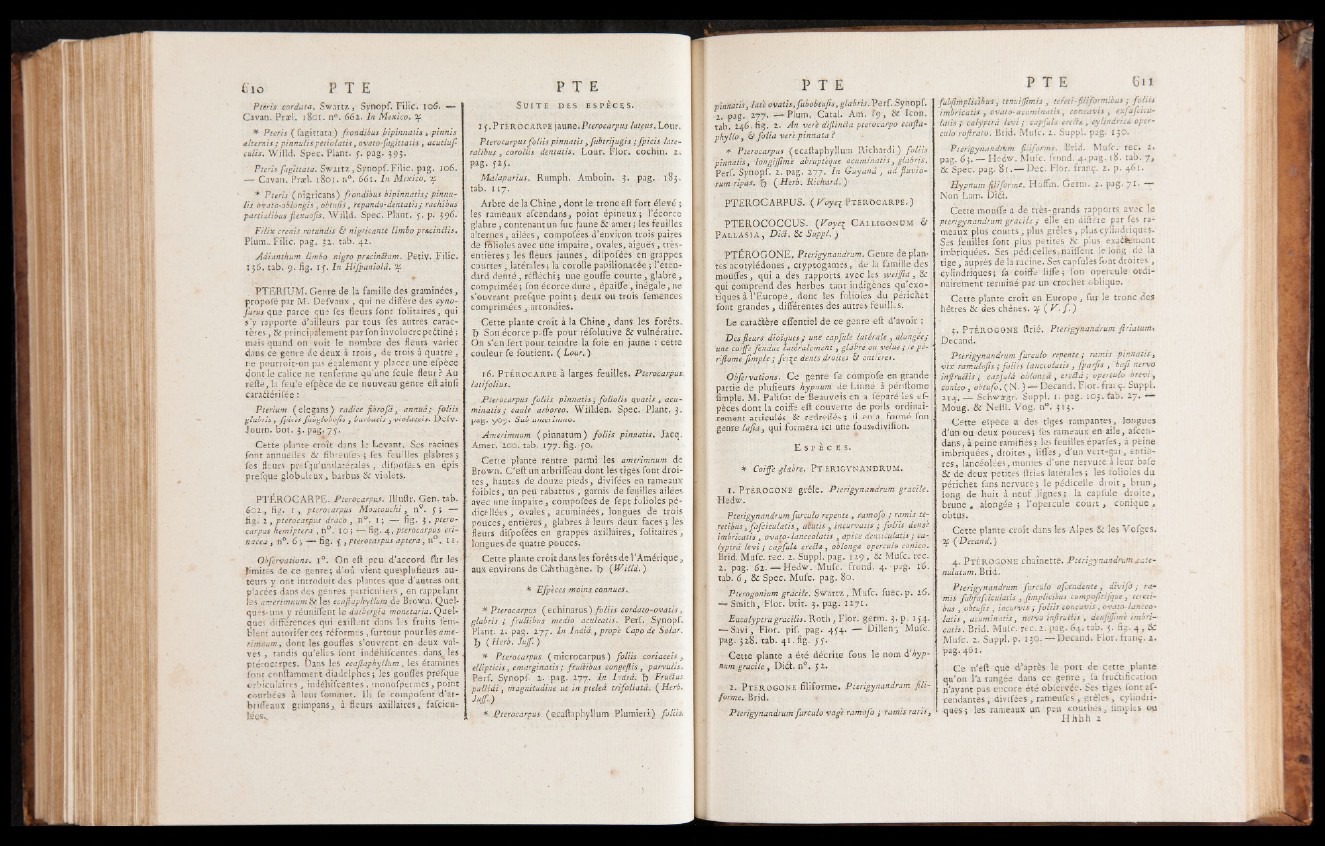 610 P T E
Pteris cordata. Swartz, Synopf. Filic. 106. —
Cavan. Præl. 1801. n°. 662. In Mexico. ♃
* Pteris (fagittata) frondibus bipinnatis, pinnis
alternis; pinnulis petiolatis, ovato-fagittatis, acutiuf-
culis. Willd. Spec. Plant. 5. pag. 393.
Pteris fagittata. Swartz, Synopf. Filic. pag. 106.
— Cavan. Præl. 1801. n°. 661. In Mexico, ♃
* Pteris (nigricans) frondibus bipinnatis; pinnu-
lis ovato-oblongis, obtufis, repando-dentatis; rachibus
partialibus flexuofis. Willd. Spec. Plant. 5. p. 396.
Filix crenis rotundis & nigricante limbo præcinctis.
Plum. Filic. pag. 32. tab. 42.
Adianthum limbo nigro præcinctum. Petiv. Filic.
136. tab. 9. fig. 15. In Hifpaniolâ. ♃
PTERIUM. Genre de la famille des graminées,
propofé par M. Defvaux, qui ne diffère des cyno-
furus que parce que fes fleurs font folitaires, qui
s'y rapporte d'ailleurs par tous fes autres carac-
tères, & principalement par fon involucre pectiné;
mais quand on voit le nombre des fleurs varier
dans ce genre de deux à trois, de trois à quatre,
ne pourroit-on pas également y placer une efpèce
dont le calice ne renferme qu'une feule fleur? Au
refte, la feule efpèce de ce nouveau genre eft ainfi
caractérifée:
Pterium (elegans) radice fibrofâ, annuâ; foliis
glabris, fpicis fubglobofis, barbatis, violaceis. Defv.
Journ. bot. 3. pag. 75.
Cette plante croît dans le Levant. Ses racines
font annuelles & fibreufes; fes feuilles glabres;
fes fleurs prefqu'unilatérales, difpofées en épis
prefque globuleux, barbus & violets.
PTÉROCARPE. Pterocarpus. Illuftr. Gen. tab.
602, fig. 1, pterocarpus Moutouchi, n°. 5; —
fig. 2, pterocarpus draco, n°. 1; — fig. 3, ptero-
carpus hemiptera, n°. 10; — fig. 4, pterocarpus eri-
nacea, n°. 6; — fig. 5, pterocarpus aptera, n°. 11.
Obfervations. 1°. On eft peu d'accord fur les
limites de ce genre; d'où vient que plufieurs au-
teurs y ont introduit des plantes que d'autres ont
placées dans des genres particuliers, en rappelant
les amerimnum & les ecaftaphyllum de Brown. Quel-
ques-uns y réuniffent le dalbergia monetaria. Quel-
ques différences qui exiftent dans les fruits fem-
blent autorifer ces réformes, furtout pour les ame-
rimnum, dont les gouffes s'ouvrent en deux val-
ves, tandis qu'elles font indéhifcentes dans les
ptérocarpes. Dans les ecaftaphyllum, les étamines
font conftamment diadelphes; les gouffes prefque
orbiculaires, indéhifcentes, monofpermes, point
courbées à leur fommet. Ils fe compofent d'ar-
briffeaux grimpans, à fleurs axillaires, fafcicu-
lées.
P T E
SUITE DES ESPÈCES.
15. PTÉROCARPE jaune. Pterocarpus luteus. Lour.
Pterocarpus foliis pinnatis, fubtrijugis; fpicis late-
ralibus, corollis dentatis. Lour. Flor. cochin. 2.
pag. 525.
Malaparius. Rumph. Amboin. 3. pag. 183.
tab. 117.
Arbre de la Chine, dont le tronc eft fort élevé;
les rameaux afcendans, point épineux; l'écorce
glabre, contenant un fuc jaune & amer; les feuilles
alternes, ailées, compofées d'environ trois paires
de folioles avec une impaire, ovales, aiguës, très-
entières; les fleurs jaunes, difpofées en grappes
courtes, latérales; la corolle papilionacée; l'éten-
dard denté, réfléchi; une gouffe courte, glabre,
comprimée; fon écorce dure, épaiffe, inégale, ne
s'ouvrant prefque point; deux ou trois femences
comprimées, arrondies.
Cette plante croît à la Chine, dans les forêts.
♄ Son écorce paffe pour réfolutive & vulnéraire.
On s'en fert pour teindre la foie en jaune: cette
couleur fe foutient. (Lour.)
16. PTÉROCARPE à larges feuilles. Pterocarpus
latifolius.
Pterocarpus foliis pinnatis; foliolis ovatis, acu-
minatis; caule arboreo. Willden. Spec. Plant. 3.
pag. 909. Sub amerimno.
Amerimnum (pinnatum) foliis pinnatis. Jacq.
Amer. 200. tab. 177. fig. 50.
Cette plante rentre parmi les amerimnum de
Brown. C'eft un arbriffeau dont les tiges font droi-
tes, hautes de douze pieds, divifées en rameaux
foibles, un peu rabattus, garnis de feuilles ailées
avec une impaire, compofées de fept folioles pé-
dicellées, ovales, acuminées, longues de trois
pouces, entières, glabres à leurs deux faces; les
fleurs difpofées en grappes axillaires, folitaires,
longues de quatre pouces.
Cette plante croît dans les forêts de l'Amérique,
aux environs de Carthagène. ♄ (Willd.)
* Efpèces moins connues.
* Pterocarpus (echinatus) foliis cordato-ovatis,
glabris; fructibus medio aculeatis. Perf. Synopf.
Plant. 2. pag. 277. In Indiâ, propè Capo de Solar.
♄ (Herb. Juff.)
* Pterocarpus (microcarpus) foliis coriaceis,
ellipticis, emarginatis; fructibus congeftis, parvulis.
Perf. Synopf. 2. pag. 277. In Indiâ. ♄ Fructus
pallidi, magnitudine ut in pteleâ trifoliatâ. (Herb.
Juff.)
* Pterocarpus (ecaftaphyllum Plumieri) foliis
P T E
pinnatis, latè ovatis, fubobtufis, glabris. Perf. Synopf.
2. pag. 277. — Plum. Catal. Am. 19, & Icon.
tab. 246. fig. 2. An verè diftincta pterocarpo ecafta-
phyllo, & folia verè pinnata?
* Pterocarpus (ecaftaphyllum Richardi) foliis
pinnatis, longiffimè abruptèque acuminatis, glabris.
Perf. Synopf. 2. pag. 277. In Guyanâ, ad fluvio-
rum ripas. ♄ (Herb. Richard.)
PTEROCARPUS. (Voyez PTEROCARPE.)
PTEROCOCCUS. (Voyez CALLIGONUM &
PALLASIA, Dict. & Suppl.)
PTÉROGONE. Pterigynandrum. Genre de plan-
tes acotylédones, cryptogames, de la famille des
mouffes, qui a des rapports avec les weiffia, &
qui comprend des herbes tant indigènes qu'exo-
tiques à l'Europe, dont les folioles du périchet
font grandes, différentes des autres feuilles.
Le caractère effentiel de ce genre eft d'avoir:
Des fleurs dioïques; une capfule latérale, alongée;
une coiffe fendue latéralement, glabre ou velue; le pé-
riftome fimple; feize dents droites & entières.
Obfervations. Ce genre fe compofe en grande
partie de plufieurs hypnum de Linné à périftome
fimple. M. Palifot de Beauvois en a féparé les ef-
pèces dont la coiffe eft couverte de poils ordinai-
rement articulés & redreffés; il en a formé fon
genre lafia, qui formera ici une fousdivifion.
ESPÈCES.
* Coiffe glabre. PTERIGYNANDRUM.
1. PTÉROGONE grêle. Pterigynandrum gracile.
Hedw.
Pterigynandrum furculo repente, ramofo; ramis te-
retibus, fafciculatis, acutis, incurvatis; foliis densè
imbricatis, ovato-lanceolatis, apice denticulatis; ca-
lyptrâ levi; capfula erecta, oblonge operculo conico.
Brid. Mufc. rec. 2. Suppl. pag. 129, & Mufc. rec.
2. pag. 62. — Hedw. Mufc. frond. 4. pag. 16.
tab. 6, & Spec. Mufc. pag. 80.
Pterogonium gracile. Swartz, Mufc. fuec. p. 26.
— Smith, Flor. brit. 3. pag. 1271.
Encalyptra gracilis. Roth, Flor. germ. 3. p. 154.
— Savi, Flor. pif. pag. 454. — Dillen, Mufc.
pag. 328. tab. 41. fig. 55.
Cette plante a été décrite fous le nom d'hyp-
num gracile, Dict. n°. 52.
2. PTEROGONE filiforme. Pterigynandrum fili-
forme. Brid.
Pterigynandrum furculo vagè ramofo; ramis raris,
P T E 611
fubfimplicibus, tenuiffimis, tereti-filiformibus; foliis
imbricatis, ovato-acuminatis, concavis, exfafcicu-
latis; calyptrâ levi; capfula erecta, cylindricâ oper-
culo roftrato. Brid. Mufc. 2. Suppl. pag. 130.
Pterigynandrum filiforme. Brid. Mufc. rec. 2.
pag. 63. — Hedw. Mufc. frond. 4. pag. 18. tab. 7,
& Spec. pag. 81. — Dec. Flor. franç. 2. p. 461.
Hypnum filiforme. Hoffm. Germ. 2. pag. 71. —
Non Lam. Dict.
Cette mouffe a de très-grands rapports avec le
pterigynandrum gracile; elle en diffère par fes ra-
meaux plus courts, plus grêles, plus cylindriques.
Ses feuilles font plus petites & plus exactement
imbriquées. Ses pédicelles naiffent le long de la
tige, auprès de la racine. Ses capfules font droites,
cylindriques; fa coiffe liffe; fon opercule ordi-
nairement terminé par un crochet oblique.
Cette plante croît en Europe, fur le tronc des
hêtres & des chênes. ♃ (V. f.)
3. PTEROGONE ftrié. Pterigynandrum ftriatum.
Decand.
Pterigynandrum furculo repente; ramis pinnatis,
vix ramulofis; foliis lanceolatis, fparfis, bafi nervo
inftructis; capfulâ oblongâ, erectâ; operculo brevi,
conico, obtufo. (N.) — Decand. Flor. franç. Suppl.
214. — Schwægr. Suppl. 1. pag. 103. tab. 27. —
Moug. & Neftl. Vog. n°. 313.
Cette efpèce a des tiges rampantes, longues
d'un ou deux pouces; fes rameaux en aîle, afcen-
dans, à peine ramifiés; les feuilles éparfes, à peine
imbriquées, droites, liffes, d'un vert-gai, entiè-
res, lancéolées, munies d'une nervure à leur bafe
& de deux petites ftries latérales; les folioles du
périchet fans nervure; le pédicelle droit, brun,
long de huit à neuf lignes; la capfule droite,
brune, alongée; l'opercule court, conique,
obtus.
Cette plante croît dans les Alpes & les Vofges.
♃ (Decand.)
4. PTÉROGONE chaînette. Pterigynandrum cate-
nulatum. Brid.
Pterigynandrum furculo afcendente, divifo; ra-
mis fubfafciculatis, fimplicibus compofitifque, tereti-
bus, obtufis, incurvis; foliis concavis, ovato-lanceo-
latis, acuminatis, nervo inftructis, denfiffimè imbri-
catis. Brid. Mufc. rec. 2. pag. 64. tab. 5. fig. 4, &
Mufc. 2. Suppl. p. 130. — Decand. Flor. franç. 2.
pag. 461.
Ce n'eft que d'après le port de cette plante
qu'on l'a rangée dans ce genre, fa fructification
n'ayant pas encore été obfervée. Ses tiges font af-
cendantes; divifées, rameufes, grêles, cylindri-
ques; les rameaux un peu courbés, fimples ou
Hhhh 2